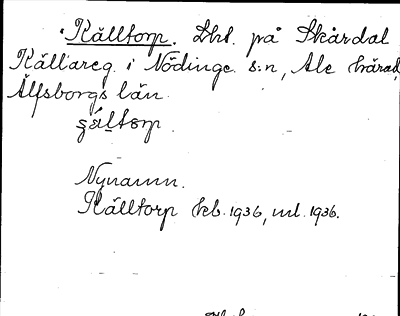 Källtorp. Lht. på Skårdal
Källareg. i Nödinge s:n, Ale härad,
Älfsborgs län.
Nynamn.
Källtorp keb. 1936, ml. 1936.